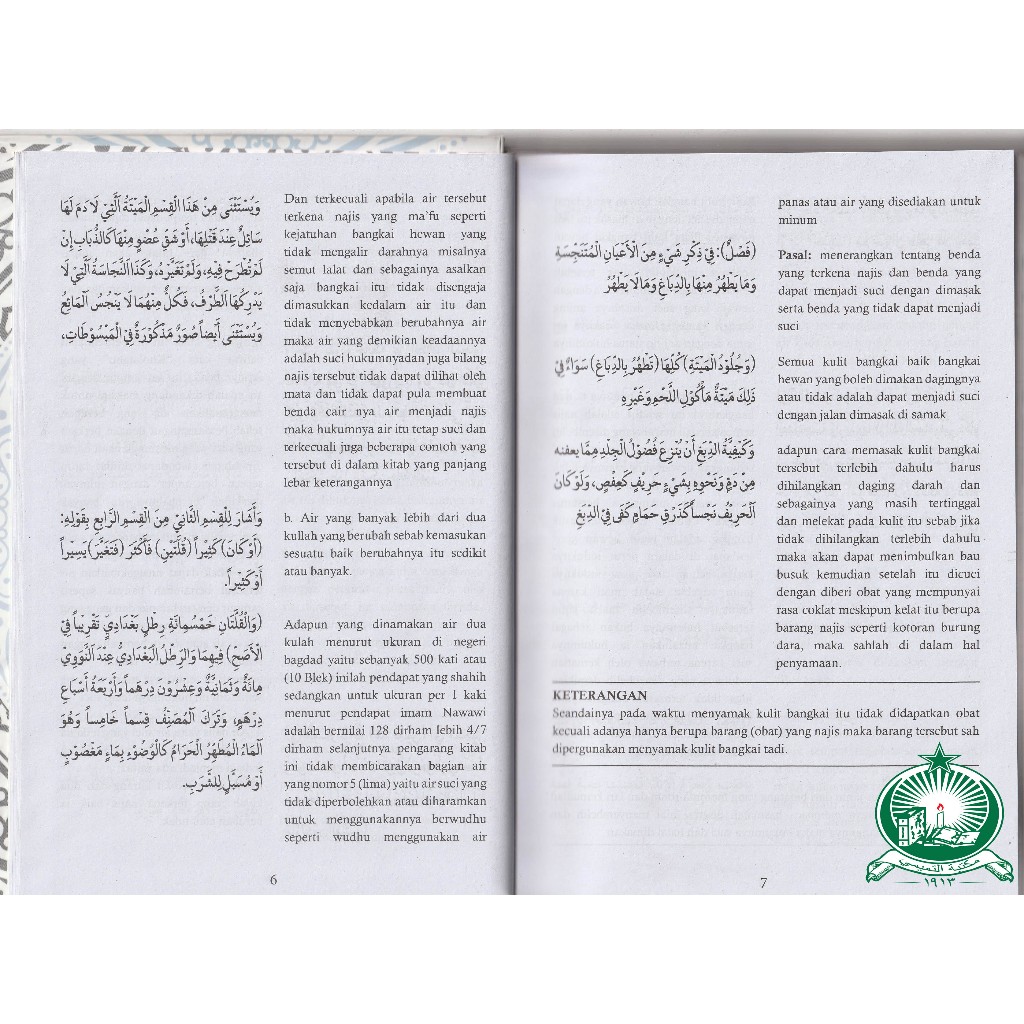 وَيُسْتَثْنَى مِنْ هَذَا الْقِسْمِ الْمَيْتَةُ الَّتِيْ لَا دَمَ لَهَا
سَائِلٌ عِنْدَ قَتْلِهَا، أَوْ شَقِّ عُضْوٍ مِنْهَا كَالذُّبَابِ إِنْ
لَمْ تُطْرَحْ فِيْهِ، وَلَمْ تُغَيِّرْهُ، وَكَذَا النَّجَاسَةُ الَّتِيْ لَا
يُدْرِكُهَا الطَّرْفُ، فَكُلٌّ مِنْهُمَا لَا يُنَجِّسُ الْمَائِعَ
وَيُسْتَثْنَى أَيْضاً صُوَرٌ مَذْكُوْرَةٌ فِي الْمَبْسُوْطَاتِ،
وَأَشَارَ لِلْقِسْمِ الثَّانِيْ مِنَ الْقِسْمِ الرَّابِعِ بِقَوْلِهِ:
(أَوْ كَانَ) كَثِيْراً (قُلَّتَيْنِ) فَأَكْثَرَ (فَتَغَيَّرَ) يَسِيْراً
أَوْ كَثِيْراً.
(وَالْقُلَّتَانِ خَمْسُمِائَةِ رِطْلٍ بَغْدَادِيٍّ تَقْرِيْباً فِي
الْأَصَحِّ) فِيْهِمَا وَالرِّطْلُ الْبَغْدَادِيُّ عِنْدَ النَّوَوِيِّ
مِائَةٌ وَثَمَانِيَّةٌ وَعِشْرُوْنَ دِرْهَماً وَأَرْبَعَةُ أَسْبَاعِ
دِرْهَمٍ، وَتَرَكَ الْمُصَنِّفُ قِسْماً خَامِساً وَهُوَ
الْمَاءُ الْمُطَهِّرُ الْحَرَامُ كَالْوُضُوْءِ بِمَاءٍ مَغْصُوْبٍ
أَوْ مُسَبَّلٍ لِلشُّرْبِ.
Dan terkecuali apabila air tersebut
terkena najis yang ma'fu seperti
kejatuhan bangkai hewan yang
tidak mengalir darahnya misalnya
semut lalat dan sebagainya asalkan
saja bangkai itu tidak disengaja
dimasukkan kedalam air itu dan
tidak menyebabkan berubahnya air
maka air yang demikian keadaannya
adalah suci hukumnyadan juga bilang
najis tersebut tidak dapat dilihat oleh
mata dan tidak dapat pula membuat
benda cair nya air menjadi najis
maka hukumnya air itu tetap suci dan
terkecuali juga beberapa contoh yang
tersebut di dalam kitab yang panjang
lebar keterangannya
b. Air yang banyak lebih dari dua
kullah yang berubah sebab kemasukan
sesuatu baik berubahnya itu sedikit
atau banyak.
Adapun yang dinamakan air dua
kulah menurut ukuran di negeri
bagdad yaitu sebanyak 500 kati atau
(10 Blek) inilah pendapat yang shahih
sedangkan untuk ukuran per 1 kaki
menurut pendapat imam Nawawi
adalah bernilai 128 dirham lebih 4/7
dirham selanjutnya pengarang kitab
ini tidak membicarakan bagian air
yang nomor 5 (lima) yaitu air suci yang
tidak diperbolehkan atau diharamkan
untuk menggunakannya berwudhu
seperti wudhu menggunakan air
6
panas atau air yang disediakan untuk
minum
(فَصْلٌ): فِيْ ذِكْرِ شَيْءٍ مِنَ الْأَعْيَانِ الْمُتَنَجِّسَةِ
وَمَا يَطْهُرُ مِنْهَا بِالدِّبَاغِ وَمَا لَا يَطْهُرُ
Pasal: menerangkan tentang benda
yang terkena najis dan benda yang
dapat menjadi suci dengan dimasak
serta benda yang tidak dapat menjadi
suci
(وَجُلُوْدُ الْمَيْتَةِ) كُلِّهَا (تَطْهُرُ بِالدِّبَاغِ) سَوَاءٌ فِيْ
ذَلِكَ مَيْتَةُ مَأْكُوْلِ اللَّحْمِ وَغَيْرِهِ
Semua kulit bangkai baik bangkai
hewan yang boleh dimakan dagingnya
atau tidak adalah dapat menjadi suci
dengan jalan dimasak di samak
وَكَيْفِيَّةُ الدَّبْغِ أَنْ يُنْزَعَ فُضُوْلُ الْجِلْدِ مِمَّا يعفنه
مِنْ دَمٍ وَنَحْوِهِ بِشَيْءٍ حَرِيْفٍ كَعَفْصٍ، وَلَوْ كَانَ
الْحَرِيْفُ نَجْساً كَذَرْقِ حَمَامٍ كَفَى فِي الدَّبْغِ
adapun cara memasak kulit bangkai
tersebut terlebih dahulu harus
dihilangkan daging darah dan
sebagainya yang masih tertinggal
dan melekat pada kulit itu sebab jika
tidak dihilangkan terlebih dahulu
maka akan dapat menimbulkan bau
busuk kemudian setelah itu dicuci
dengan diberi obat yang mempunyai
rasa coklat meskipun kelat itu berupa
barang najis seperti kotoran burung
dara, maka sahlah di dalam hal
penyamaan.
KETERANGAN
Seandainya pada waktu menyamak kulit bangkai itu tidak didapatkan obat
kecuali adanya hanya berupa barang (obat) yang najis maka barang tersebut sah
dipergunakan menyamak kulit bangkai tadi.
7
مكتبة التميمي
١٩١٣